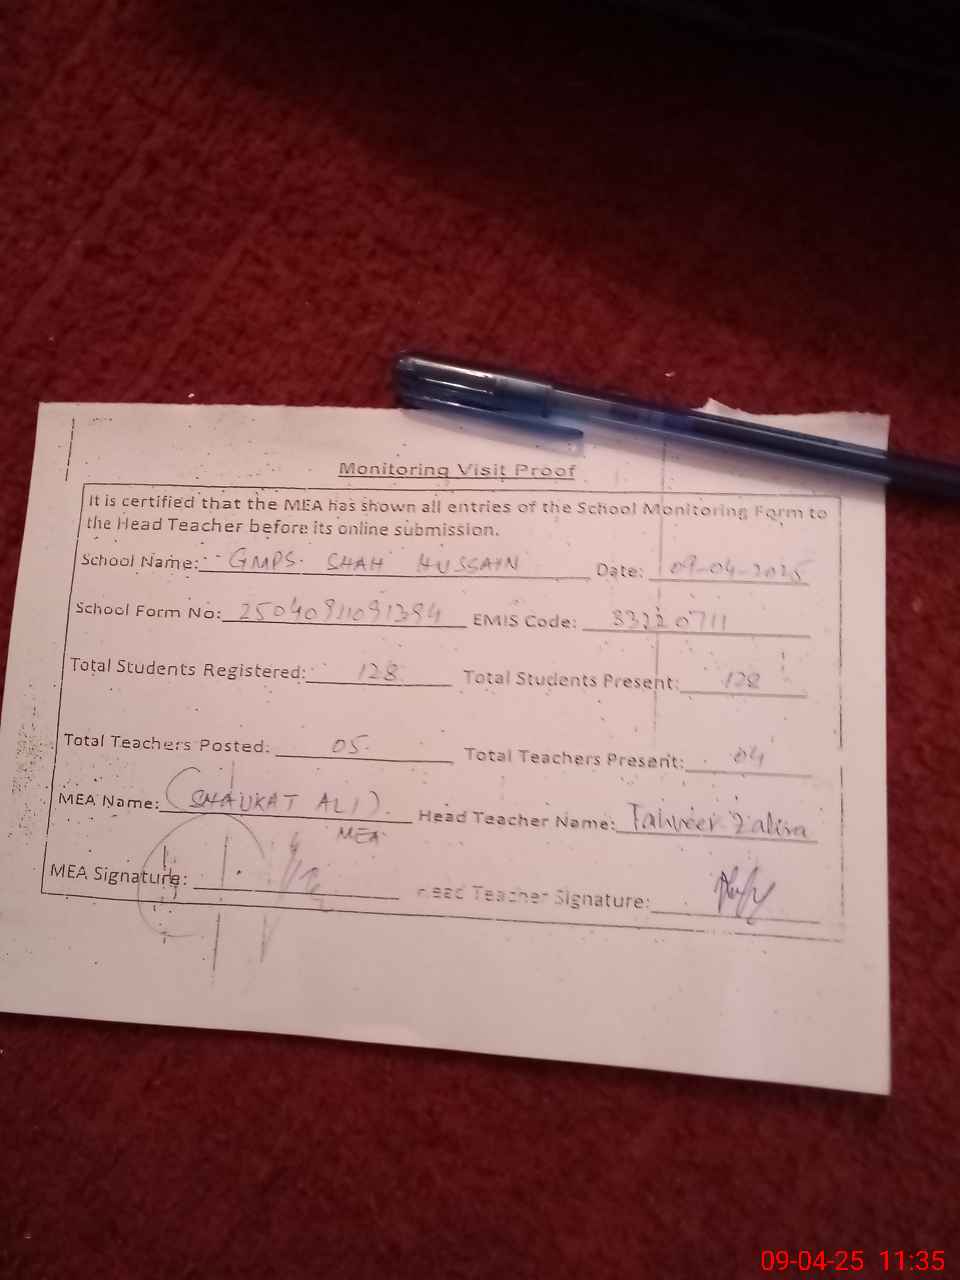 Monitoring Visit Proof
It is certified that the MEA has shown all entries of the School Monitoring Form to
the Head Teacher before its online submission.
School Name: GMPS. SHAH HUSSAIN Date: 09-04-2025
School Form No: EMIS Code: 33220711
Total Students Registered: 128 Total Students Present: 128
Total Teachers Posted: 05 Total Teachers Present: 04
MEA Name: (SHAUKAT ALI) Head Teacher Name: Tanveer
MEA
MEA Signature: Head Teacher Signature:
09-04-25 11:35